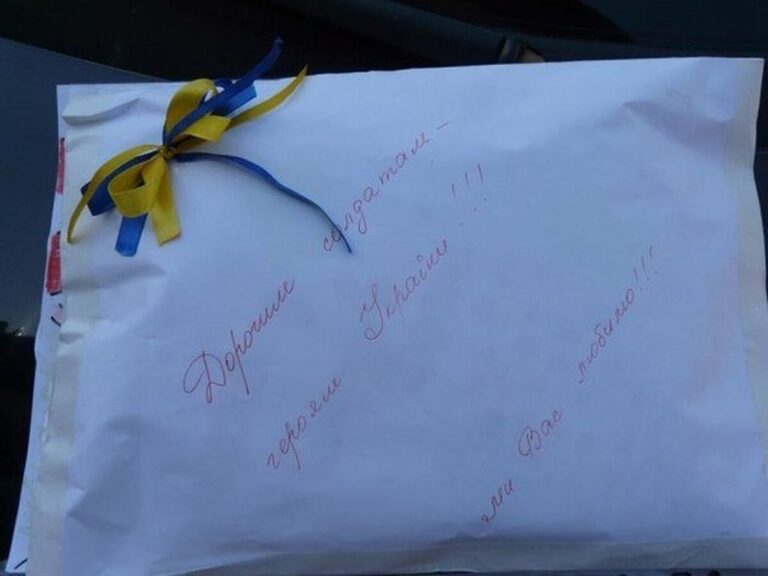 Дорогим солдатам –
героям України!!!
ми Вас любимо!!!